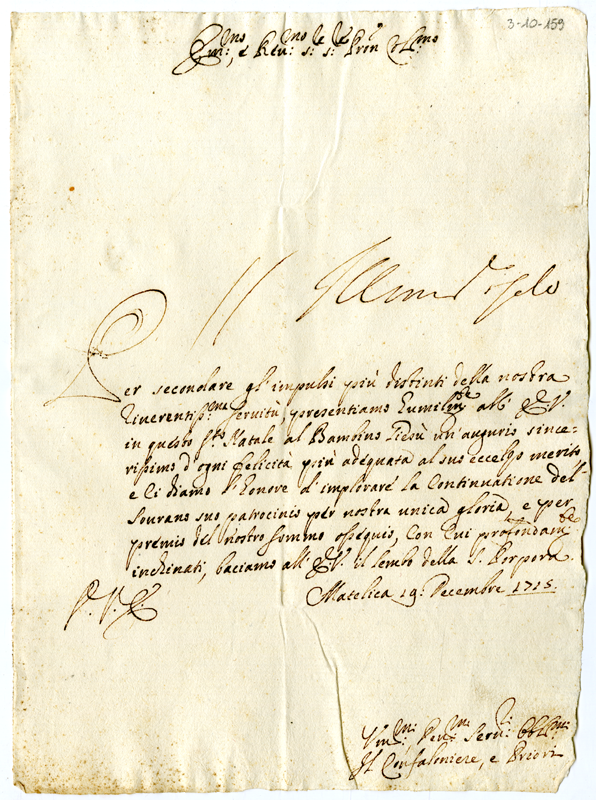 3-10-159
Em:mo, e Reu:mo Sig: Sig: Pron Col:mo
Per secondare gl'impulsi più distinti della nostra
riuerentiss:ma seruitù presentiamo humilm:te all' E.V.
in questo S.to Natale al Bambino Giesù un'augurio since=
rissimo d'ogni felicità più adeguata al suo eccelso merito
e ci diamo l'honore d'implorare la Continuatione del
Sourano suo patrocinio per nostra unica gloria, e per
premio del nostro sommo ossequio, Con cui profondam:te
inchinati, baciamo all' E.V. il lembo della S. Porpora.
Matelica 19: Decembre 1715.
Hum:mi, Deu:mi Seru:ri Obl:mi
Il Confaloniere, e Priori